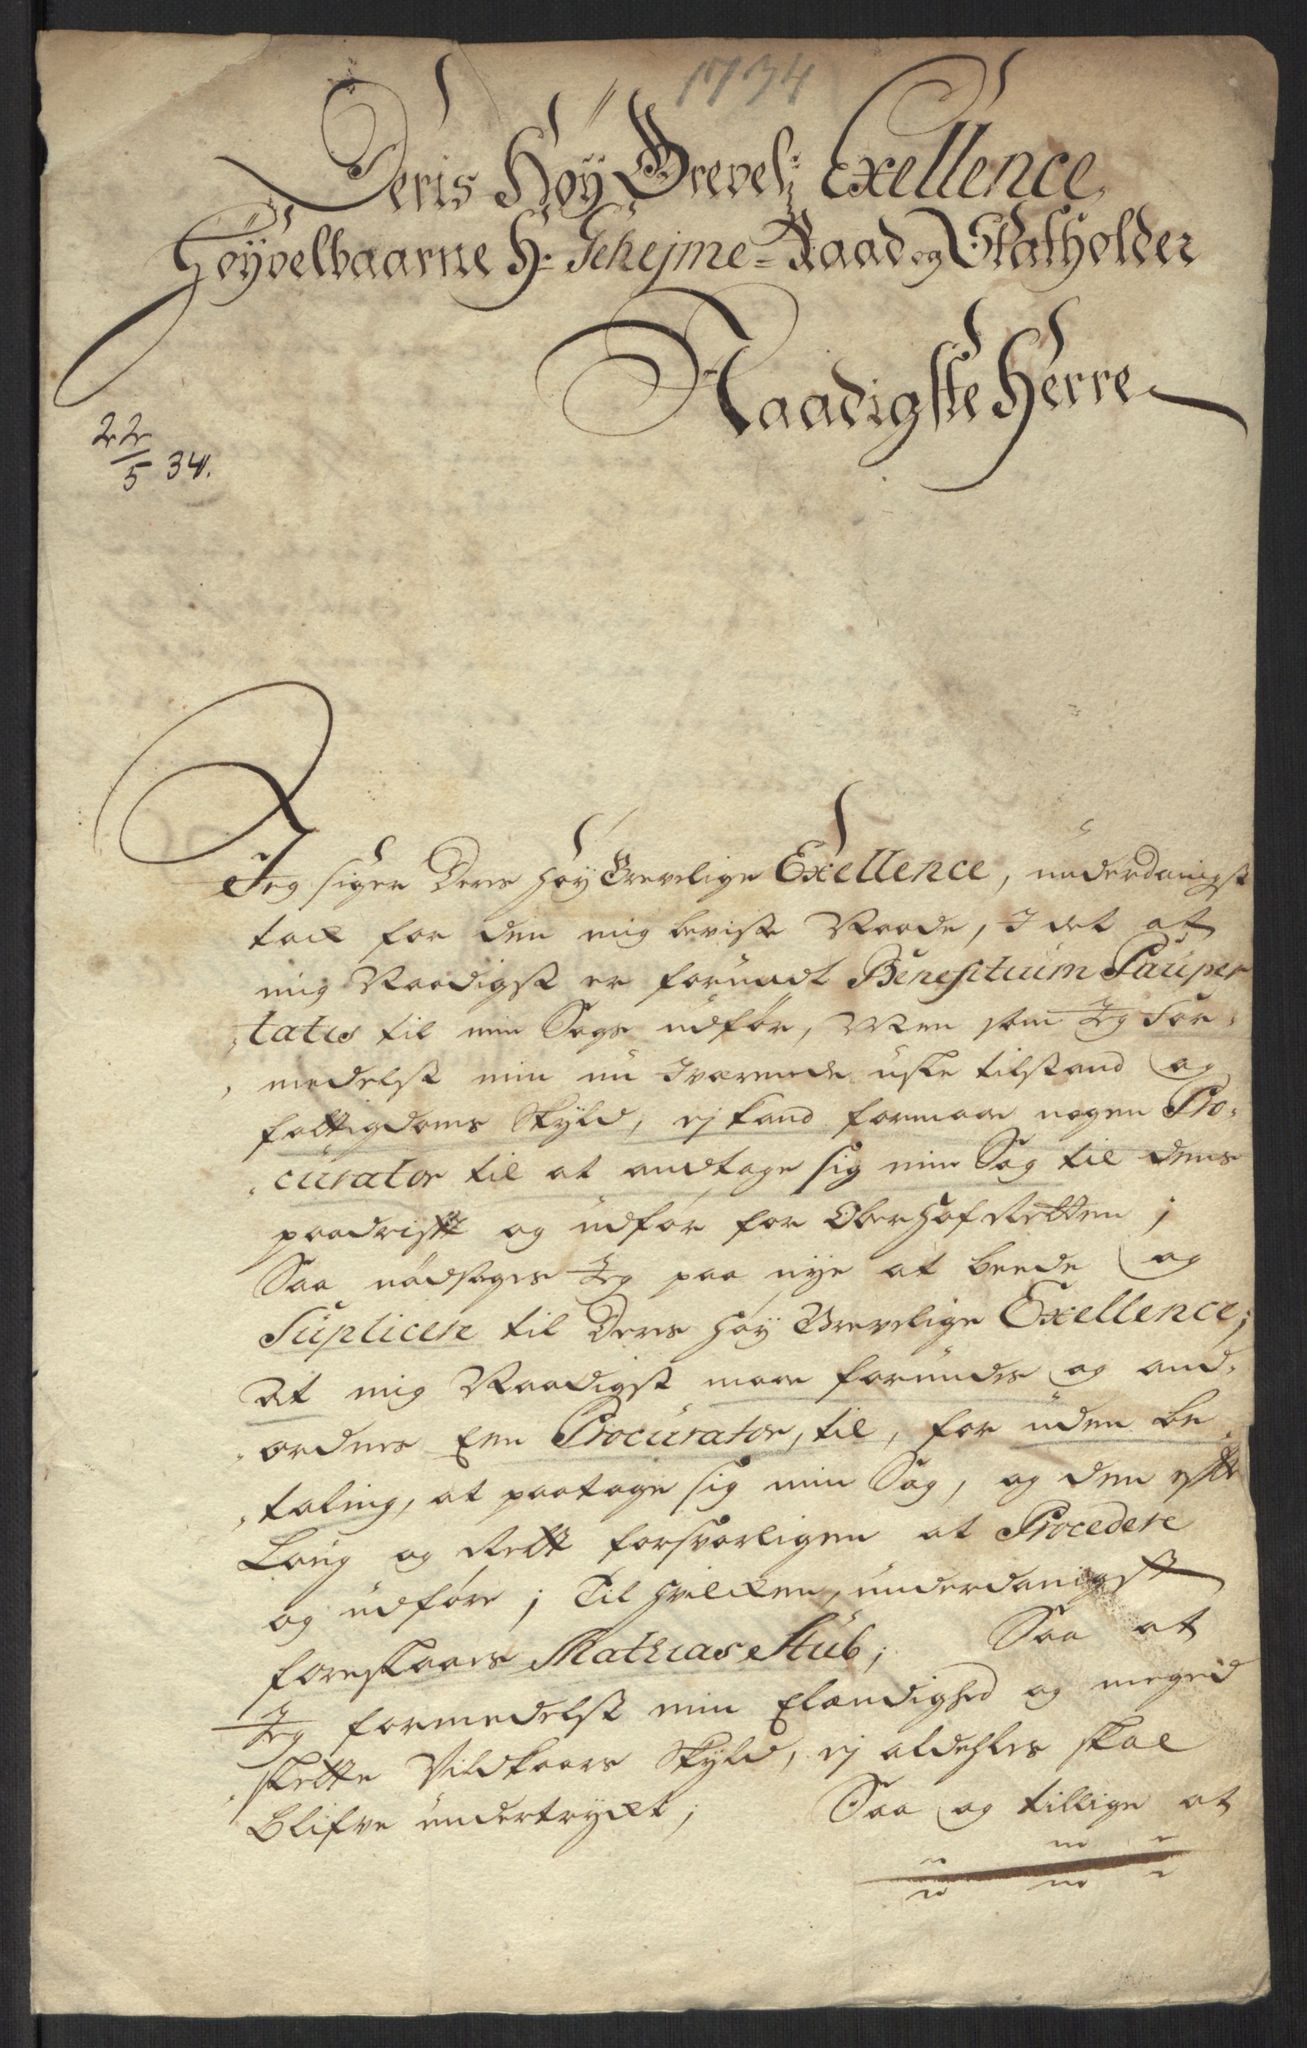 1734
Deris Høy Grevel: Exellence
Høyvelbaarne Hr: Gehejme-Raad og Statholder
Naadigste Herre
22/5 34.
Jeg siger Deris Høy Grevelige Exellence, underdanigst
tack for den mig beviste Naade, I det at
mig Naadigst er forundt Benefitium Pauper
tatis til min Sags udførs, Men som Jeg For-
medelst min nu Iværende usle tilstand og
fattigdoms Skyld, ej kand formaae nogen Pro-
curator til at andtage sig min Sag til dens
paadrift og udførs for OberhofRetten;
Saa nødsages Jeg paa nye at beede og
Suplicere til Deris Høy Grevelige Exellence;
At mig Naadigst maae forundes og and-
ordnes Een Procurator, til, for uden be
taling, at paatage sig min Sag, og den efter
Loug og Rett forsvarligen at Procedere
og udføre; Til hvilken, underdanigst
foreslaaes Mathias Stub; Saa at
Jeg formedelst min Elændighed og meged
slette Vildkaars Skyld, ej aldeeles skal
blifve undertryckt; Saa og tillige at